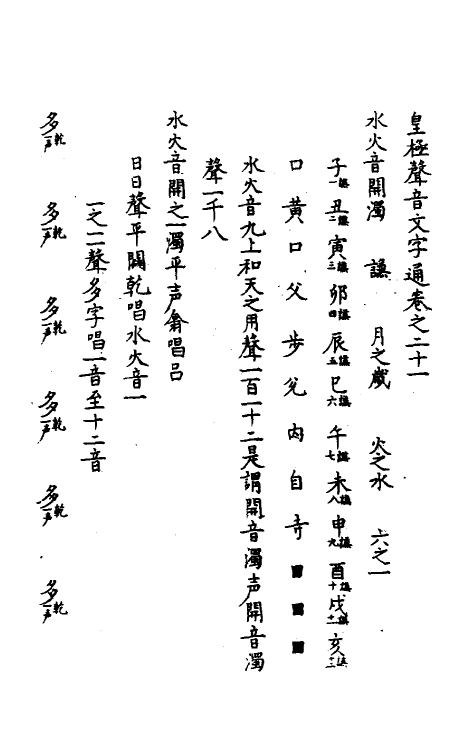 皇極聲音文字通卷之二十一
水火音開濁　謙　月之歲　火之水　六之一
子一謙 丑二謙 寅三謙 卯四謙 辰五謙 巳六謙 午七謙 未八謙 申九謙 酉十謙 戌十一謙 亥十二謙
口黃口父步兌內自寺■■■
水火音九上和天之用聲一百一十二是謂開音濁声開音濁
聲一千八
水火音開之一濁平声翕唱呂
日日聲平闢乾唱水火音一
一之二聲多字唱一音至十二音
多乾一声 多乾一声 多乾一声 多乾一声 多乾一声 多乾一声